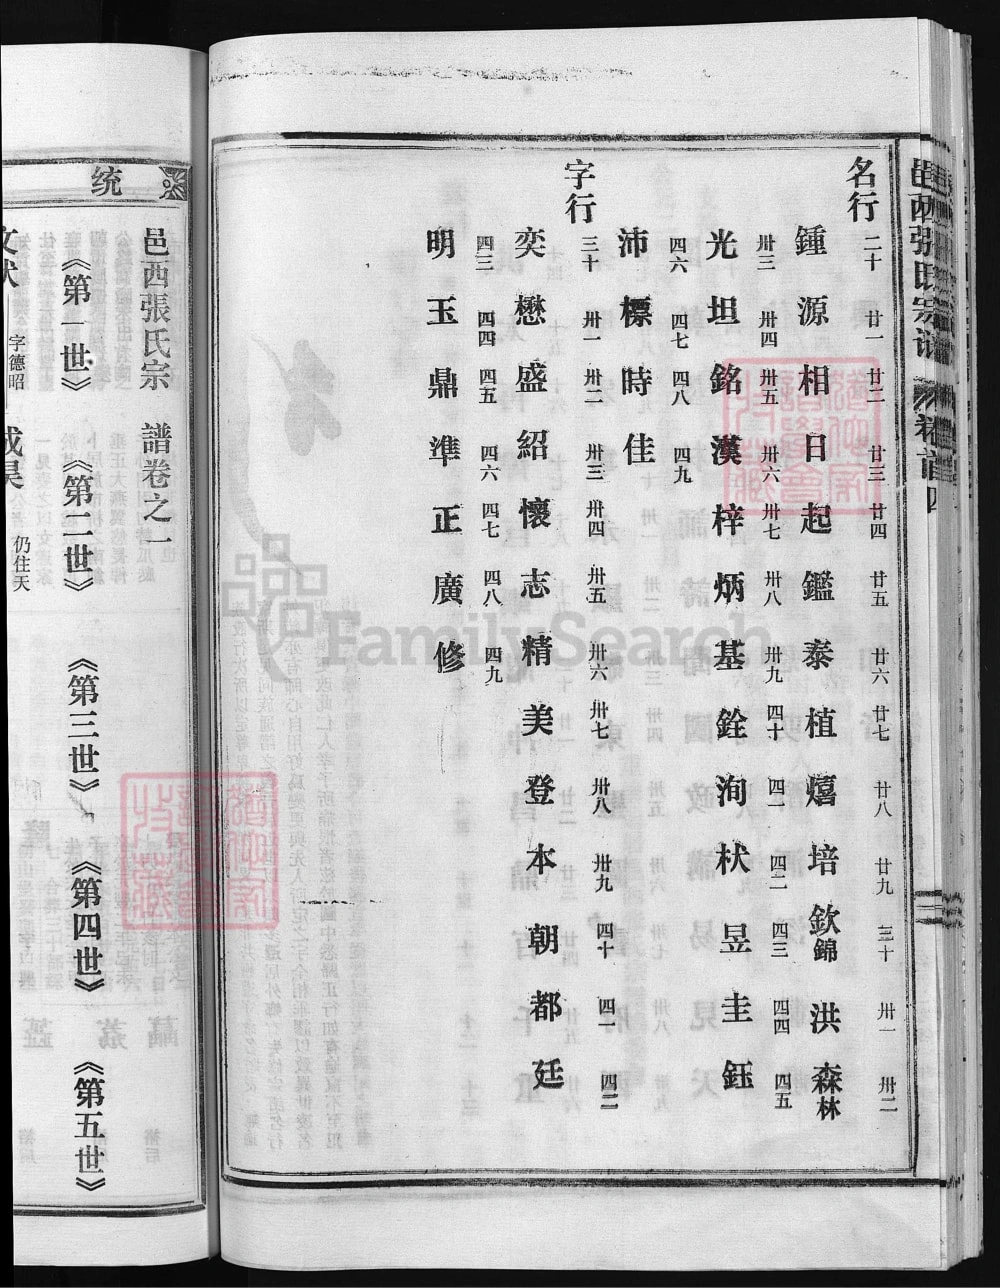 邑西張氏宗譜 卷首 四
名行
二十 廿一 廿二 廿三 廿四 廿五 廿六 廿七 廿八 廿九 三十 卅一 卅二
鍾源相日起鑑泰植熺培欽錦洪森林
卅三 卅四 卅五 卅六 卅七 卅八 卅九 四十 四一 四二 四三 四四 四五
光坦銘漢梓炳基銓洵栿昱圭鈺
四六 四七 四八 四九
沛標時佳
字行
三十 卅一 卅二 卅三 卅四 卅五 卅六 卅七 卅八 卅九 四十 四一 四二
奕懋盛紹懷志精美登本朝都廷
四三 四四 四五 四六 四七 四八 四九
明玉鼎準正廣修
邑西張氏宗 譜卷之一
统
《第一世》 《第二世》 《第三世》 《第四世》 《第五世》
字德昭
仍住天
FamilySearch